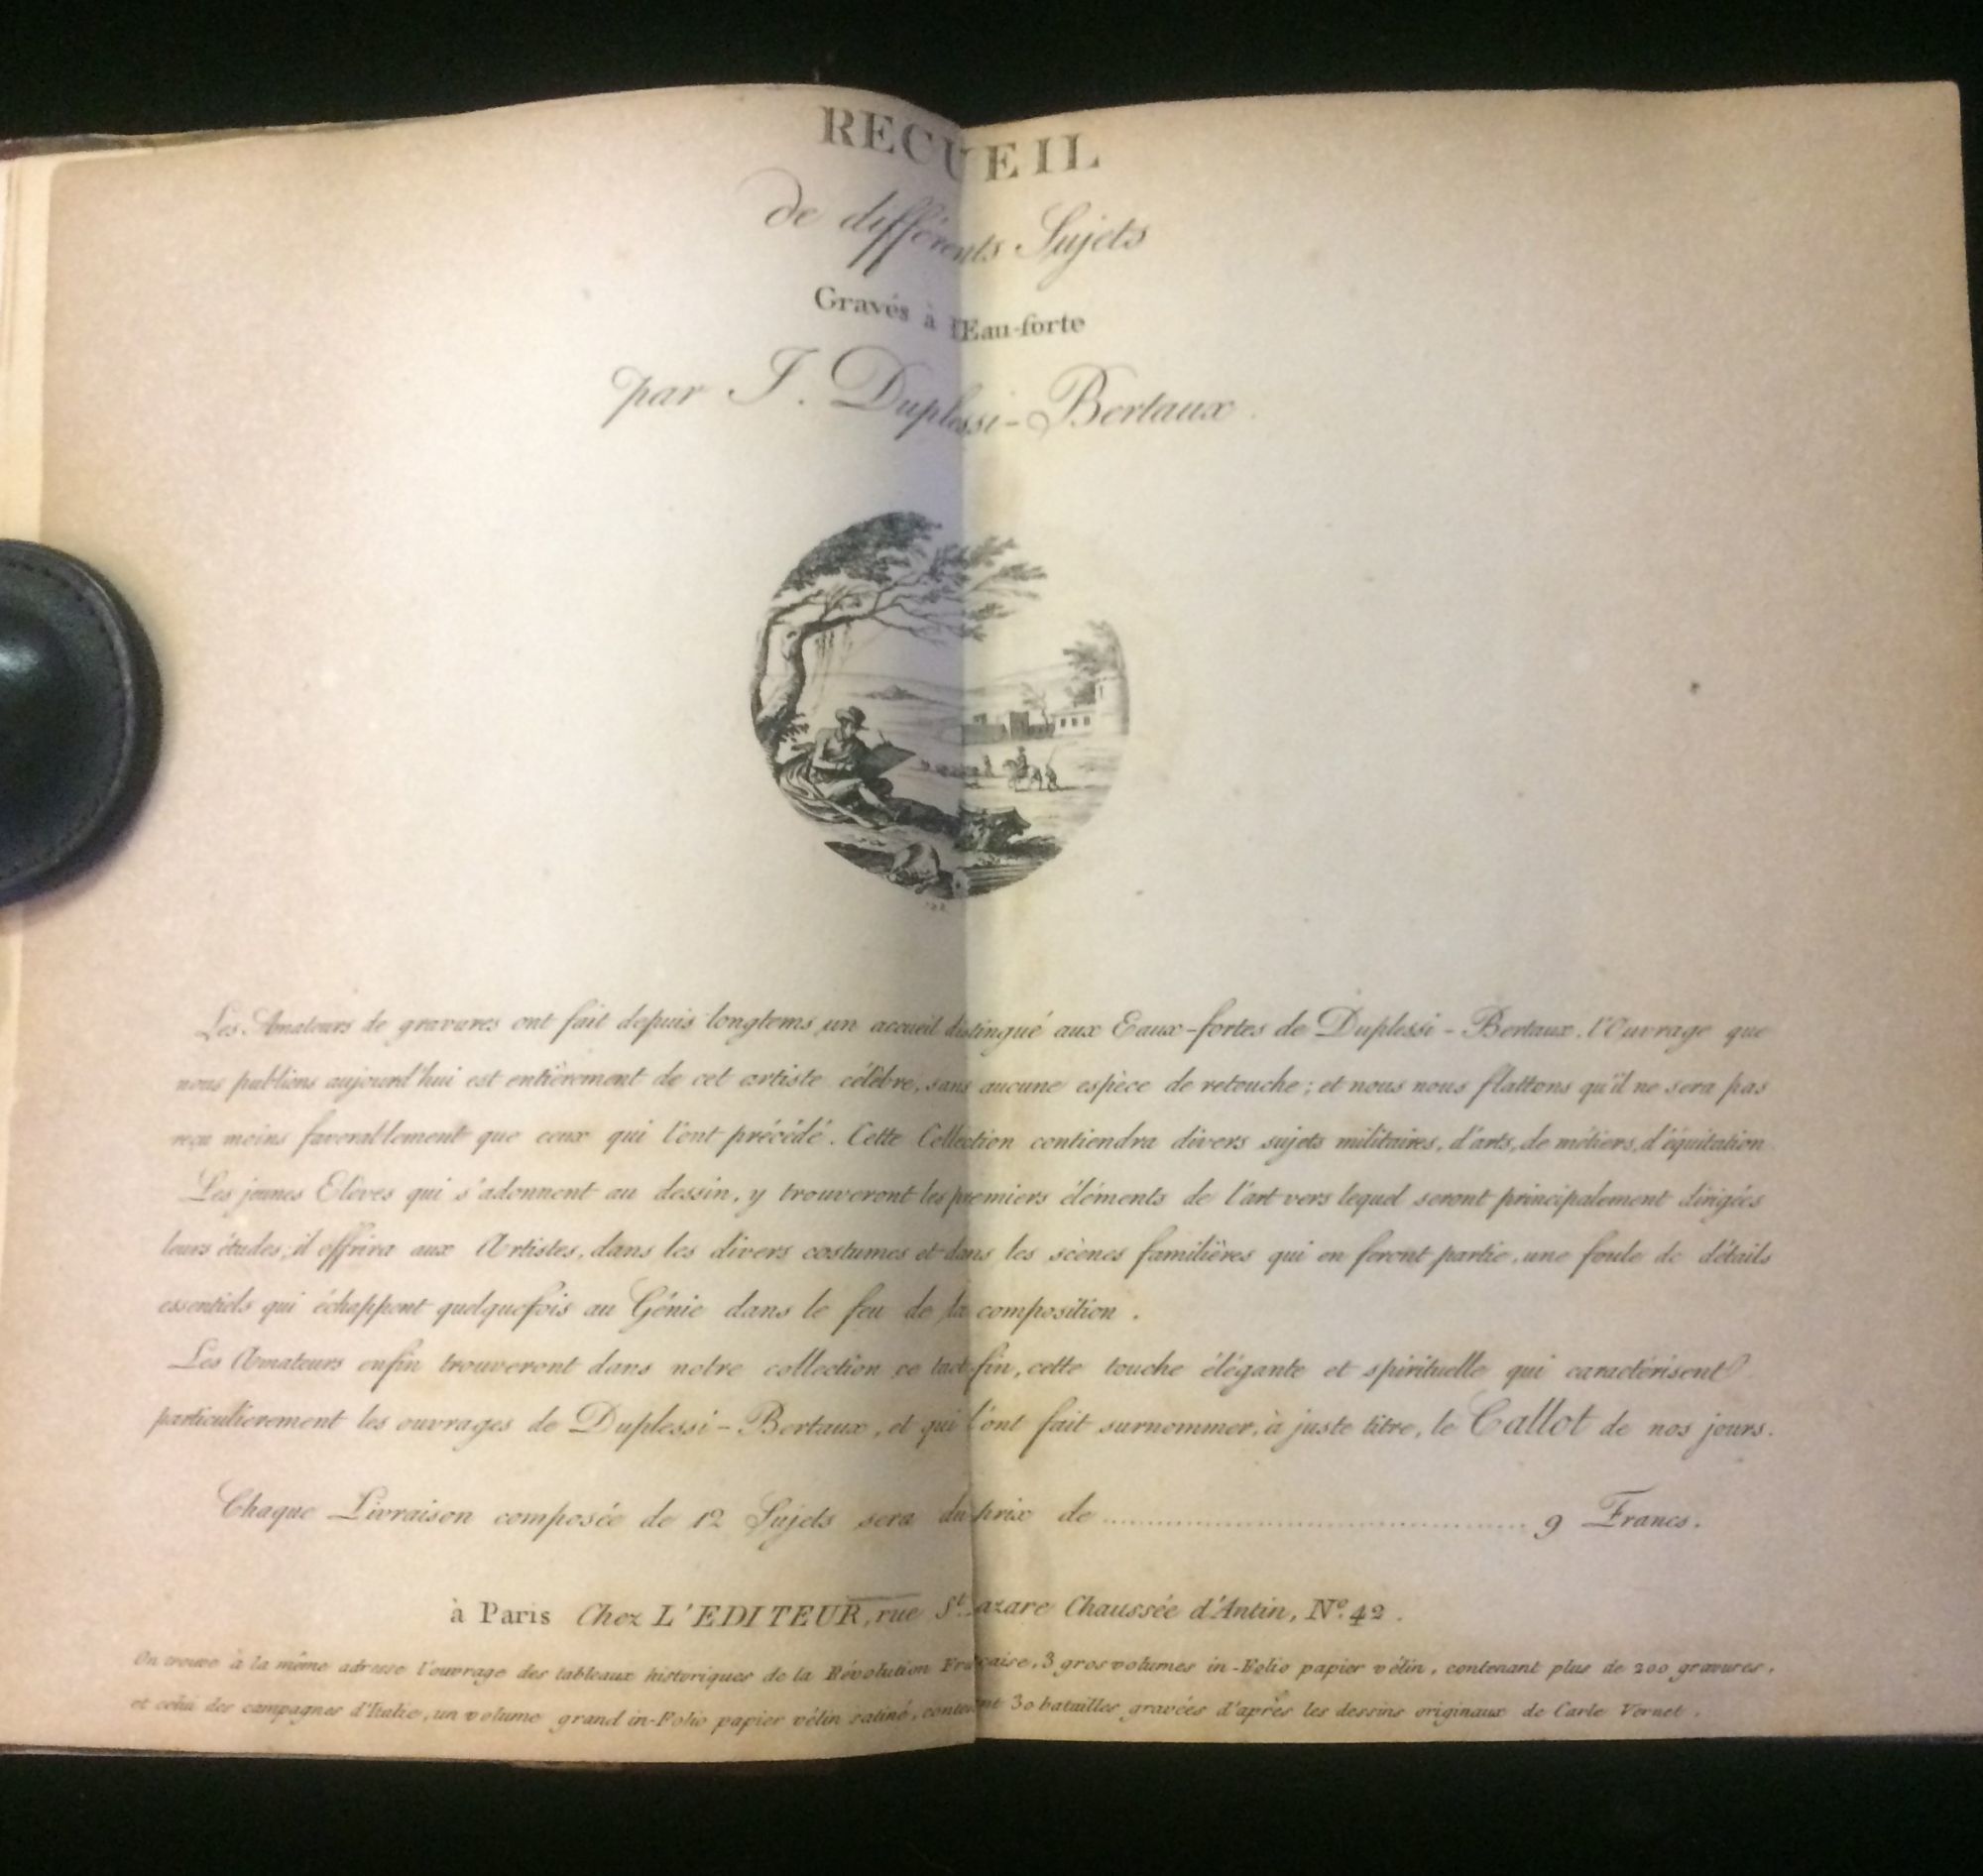 RECUEIL
de différents Sujets
Gravés à l'Eau-forte
par J. Duplessi-Bertaux.
Les Amateurs de gravures ont fait depuis longtems un accueil distingué aux Eaux-fortes de Duplessi-Bertaux. l'Ouvrage que
nous publions aujourd'hui est entièrement de cet artiste célèbre, sans aucune espèce de retouche; et nous nous flattons qu'il ne sera pas
reçu moins favorablement que ceux qui l'ont précédé. Cette Collection contiendra divers sujets militaires, d'arts, de métiers, d'équitation
Les jeunes Elèves qui s'adonnent au dessin, y trouveront les premiers éléments de l'art vers lequel seront principalement dirigées
leurs études; il offrira aux Artistes, dans les divers costumes et dans les scènes familières qui en feront partie, une foule de détails
essentiels qui échappent quelquefois au Génie dans le feu de la composition.
Les Amateurs enfin trouveront dans notre collection ce tact fin, cette touche élégante et spirituelle qui caractérisent
particulierement les ouvrages de Duplessi-Bertaux, et qui l'ont fait surnommer, à juste titre, le Callot de nos jours.
Chaque Livraison composée de 12 Sujets sera du prix de .................................... 9 Francs.
à Paris Chez L'EDITEUR, rue St. Lazare Chaussée d'Antin, No. 42.
On trouve à la même adresse l'ouvrage des tableaux historiques de la Révolution Française, 3 gros volumes in-Folio papier vélin, contenant plus de 200 gravures,
et celui des campagnes d'Italie, un volume grand in-Folio papier vélin satiné, contenant 30 batailles gravées d'après les dessins originaux de Carle Vernet.